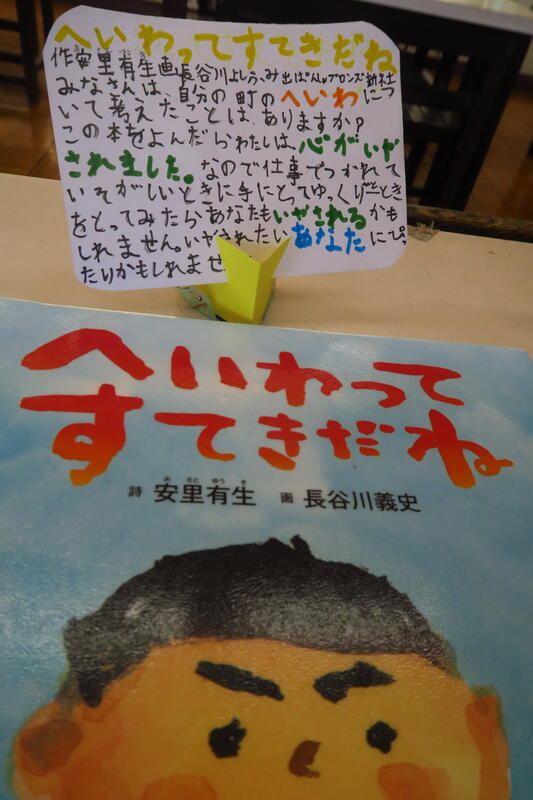 へいわってすてきだね
作安里有生画長谷川よしふみ出ぱんしゃブロンズ新社
みなさんは、自分の町のへいわにつ
いて考えたことは、ありますか?
この本をよんだらわたしは、心がいや
されました。なので仕事でつかれてて
いそがしいときに手にとってゆっくりとき
をとってみたらあなたもいやされるかも
しれません。いやされたいあなたにぴっ
たりかもしれませ
へいわって
すてきだね
詩 安里有生 画 長谷川義史
あ さと ゆう き